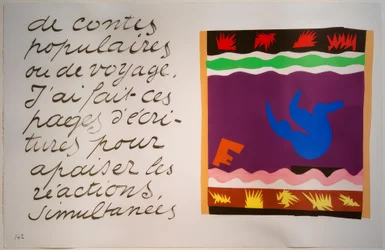 de contes
populaires
ou de voyage.
J'ai fait ces
pages d'écri-
tures pour
apaiser les
réactions
simultanées
142